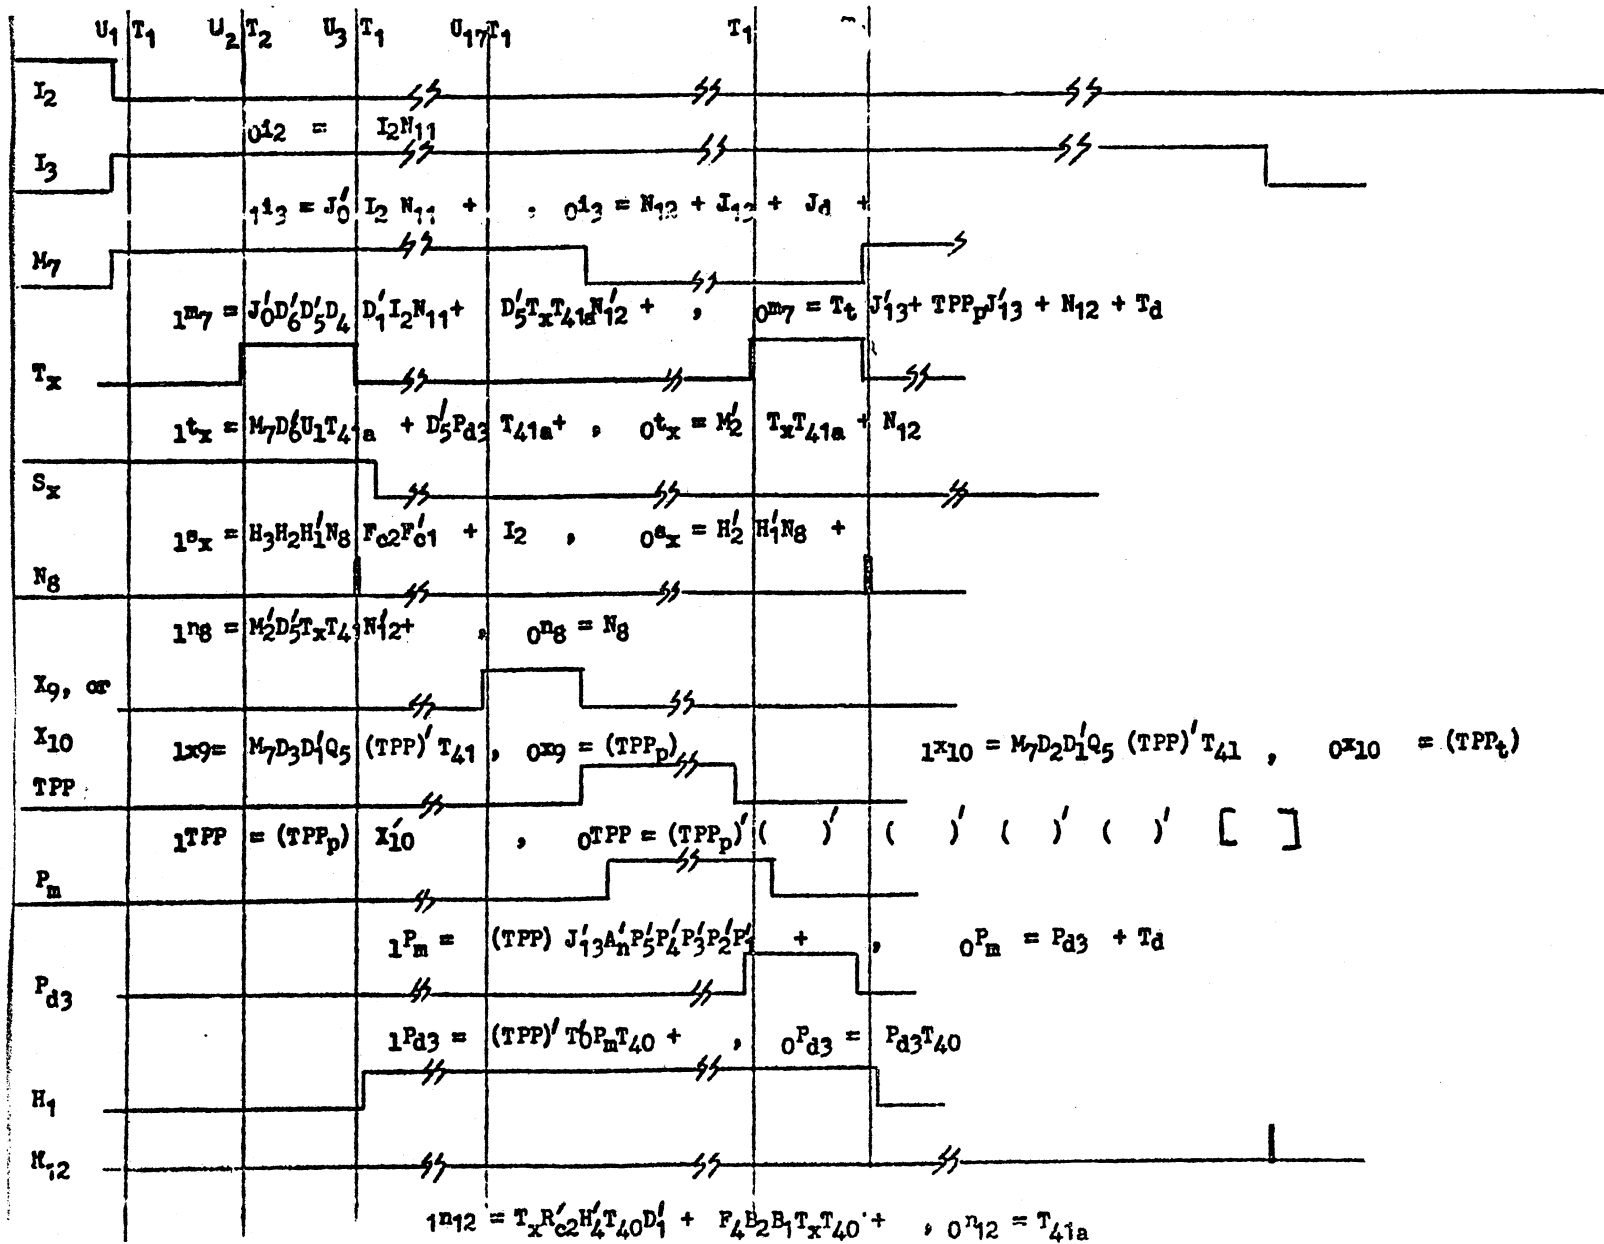 U₁ T₁ U₂ T₂ U₃ T₁ U₁₇ T₁ T₁
I₂
₀i₂ = I₂N₁₁
I₃
₁i₃ = J₀′ I₂ N₁₁ + , ₀i₃ = N₁₂ + I₁₃ + J_d +
M₇
₁m₇ = J₀′D₆′D₅′D₄ D₁′I₂N₁₁+ D₅′TₓT₄₁ₐN₁₂′ + , ₀m₇ = T_t J₁₃′+ TPP_pJ₁₃′ + N₁₂ + T_d
Tₓ
₁tₓ = M₇D₆′U₁T₄₁ₐ + D₅′P_d3 T₄₁ₐ+ , ₀tₓ = M₂′ TₓT₄₁ₐ + N₁₂
Sₓ
₁sₓ = H₃H₂H₁′N₈ F_c2F_c1′ + I₂ , ₀sₓ = H₂′ H₁′N₈ +
N₈
₁n₈ = M₂′D₅′TₓT₄₁N₁₂′+ , ₀n₈ = N₈
X₉, or
X₁₀ ₁x₉= M₇D₃D₁′Q₅ (TPP)′ T₄₁ , ₀x₉ = (TPP_p) ₁x₁₀ = M₇D₂D₁′Q₅ (TPP)′T₄₁ , ₀x₁₀ = (TPP_t)
TPP
₁TPP = (TPP_p) X₁₀′ , ₀TPP = (TPP_p)′( )′ ( )′ ( )′ ( )′ [ ]
P_m
₁P_m = (TPP) J₁₃′A_n′P₅′P₄′P₃′P₂′P₁′ + , ₀P_m = P_d3 + T_d
P_d3
₁P_d3 = (TPP)′ T₀′P_mT₄₀ + , ₀P_d3 = P_d3T₄₀
H₁
₁n₁₂ = TₓR_c2′H₄′T₄₀D₁′ + F₄B₂B₁TₓT₄₀ + , ₀n₁₂ = T₄₁ₐ